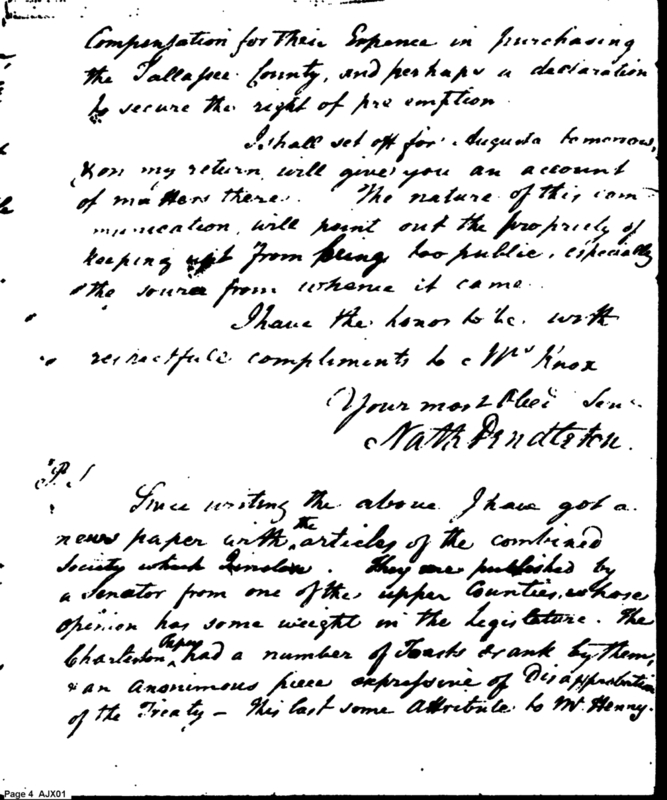 Compensation for their Expence in purchasing
the Tallassee County, and perhaps a declaration
to secure the right of pre emption.
I shall set off for Augusta tomorrow,
& on my return, will give you an account
of matters there. The nature of this com-
munication, will point out the propriety of
keeping it from being too public, especially
the source from whence it came.
I have the honor to be with
respectfull compliments to Mrs Knox
Your most Obed Serv
Nath Pendleton.
P.S
Since writing the above I have got a
news paper with the articles of the combined
Society which I enclose. They are published by
a Senator from one of the upper Counties, whose
opinion has some weight in the Legislature. The
Charleston Papers had a number of Toasts drank by them,
& an anonimous piece expressive of Disapprobation
of the Treaty – this last some Attribute to Mr Henry.
Page 4 AJX01